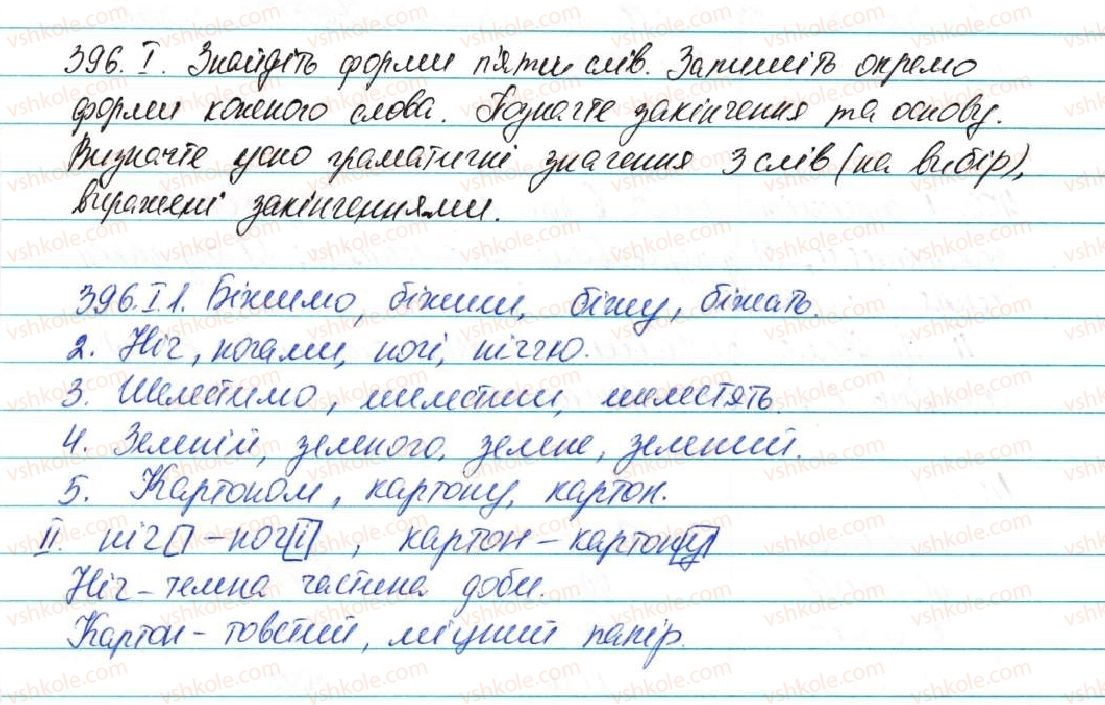 396. I. Знайдіть форми п'яти слів. Запишіть окремо
форми кожного слова. Позначте закінчення та основу.
Визначте усно граматичні значення 3 слів (на вибір),
виражені закінченнями.
396. I. 1. Біжимо, біжиш, біжу, біжать.
2. Ніч, ночами, ночі, ніччю.
3. Шелестимо, шелестиш, шелестять.
4. Зеленій, зеленого, зелене, зелений.
5. Картоном, картону, картон.
II. ніч – ночі, картон – картону
Ніч – темна частина доби.
Картон – товстий, міцний папір.
vshkole.com